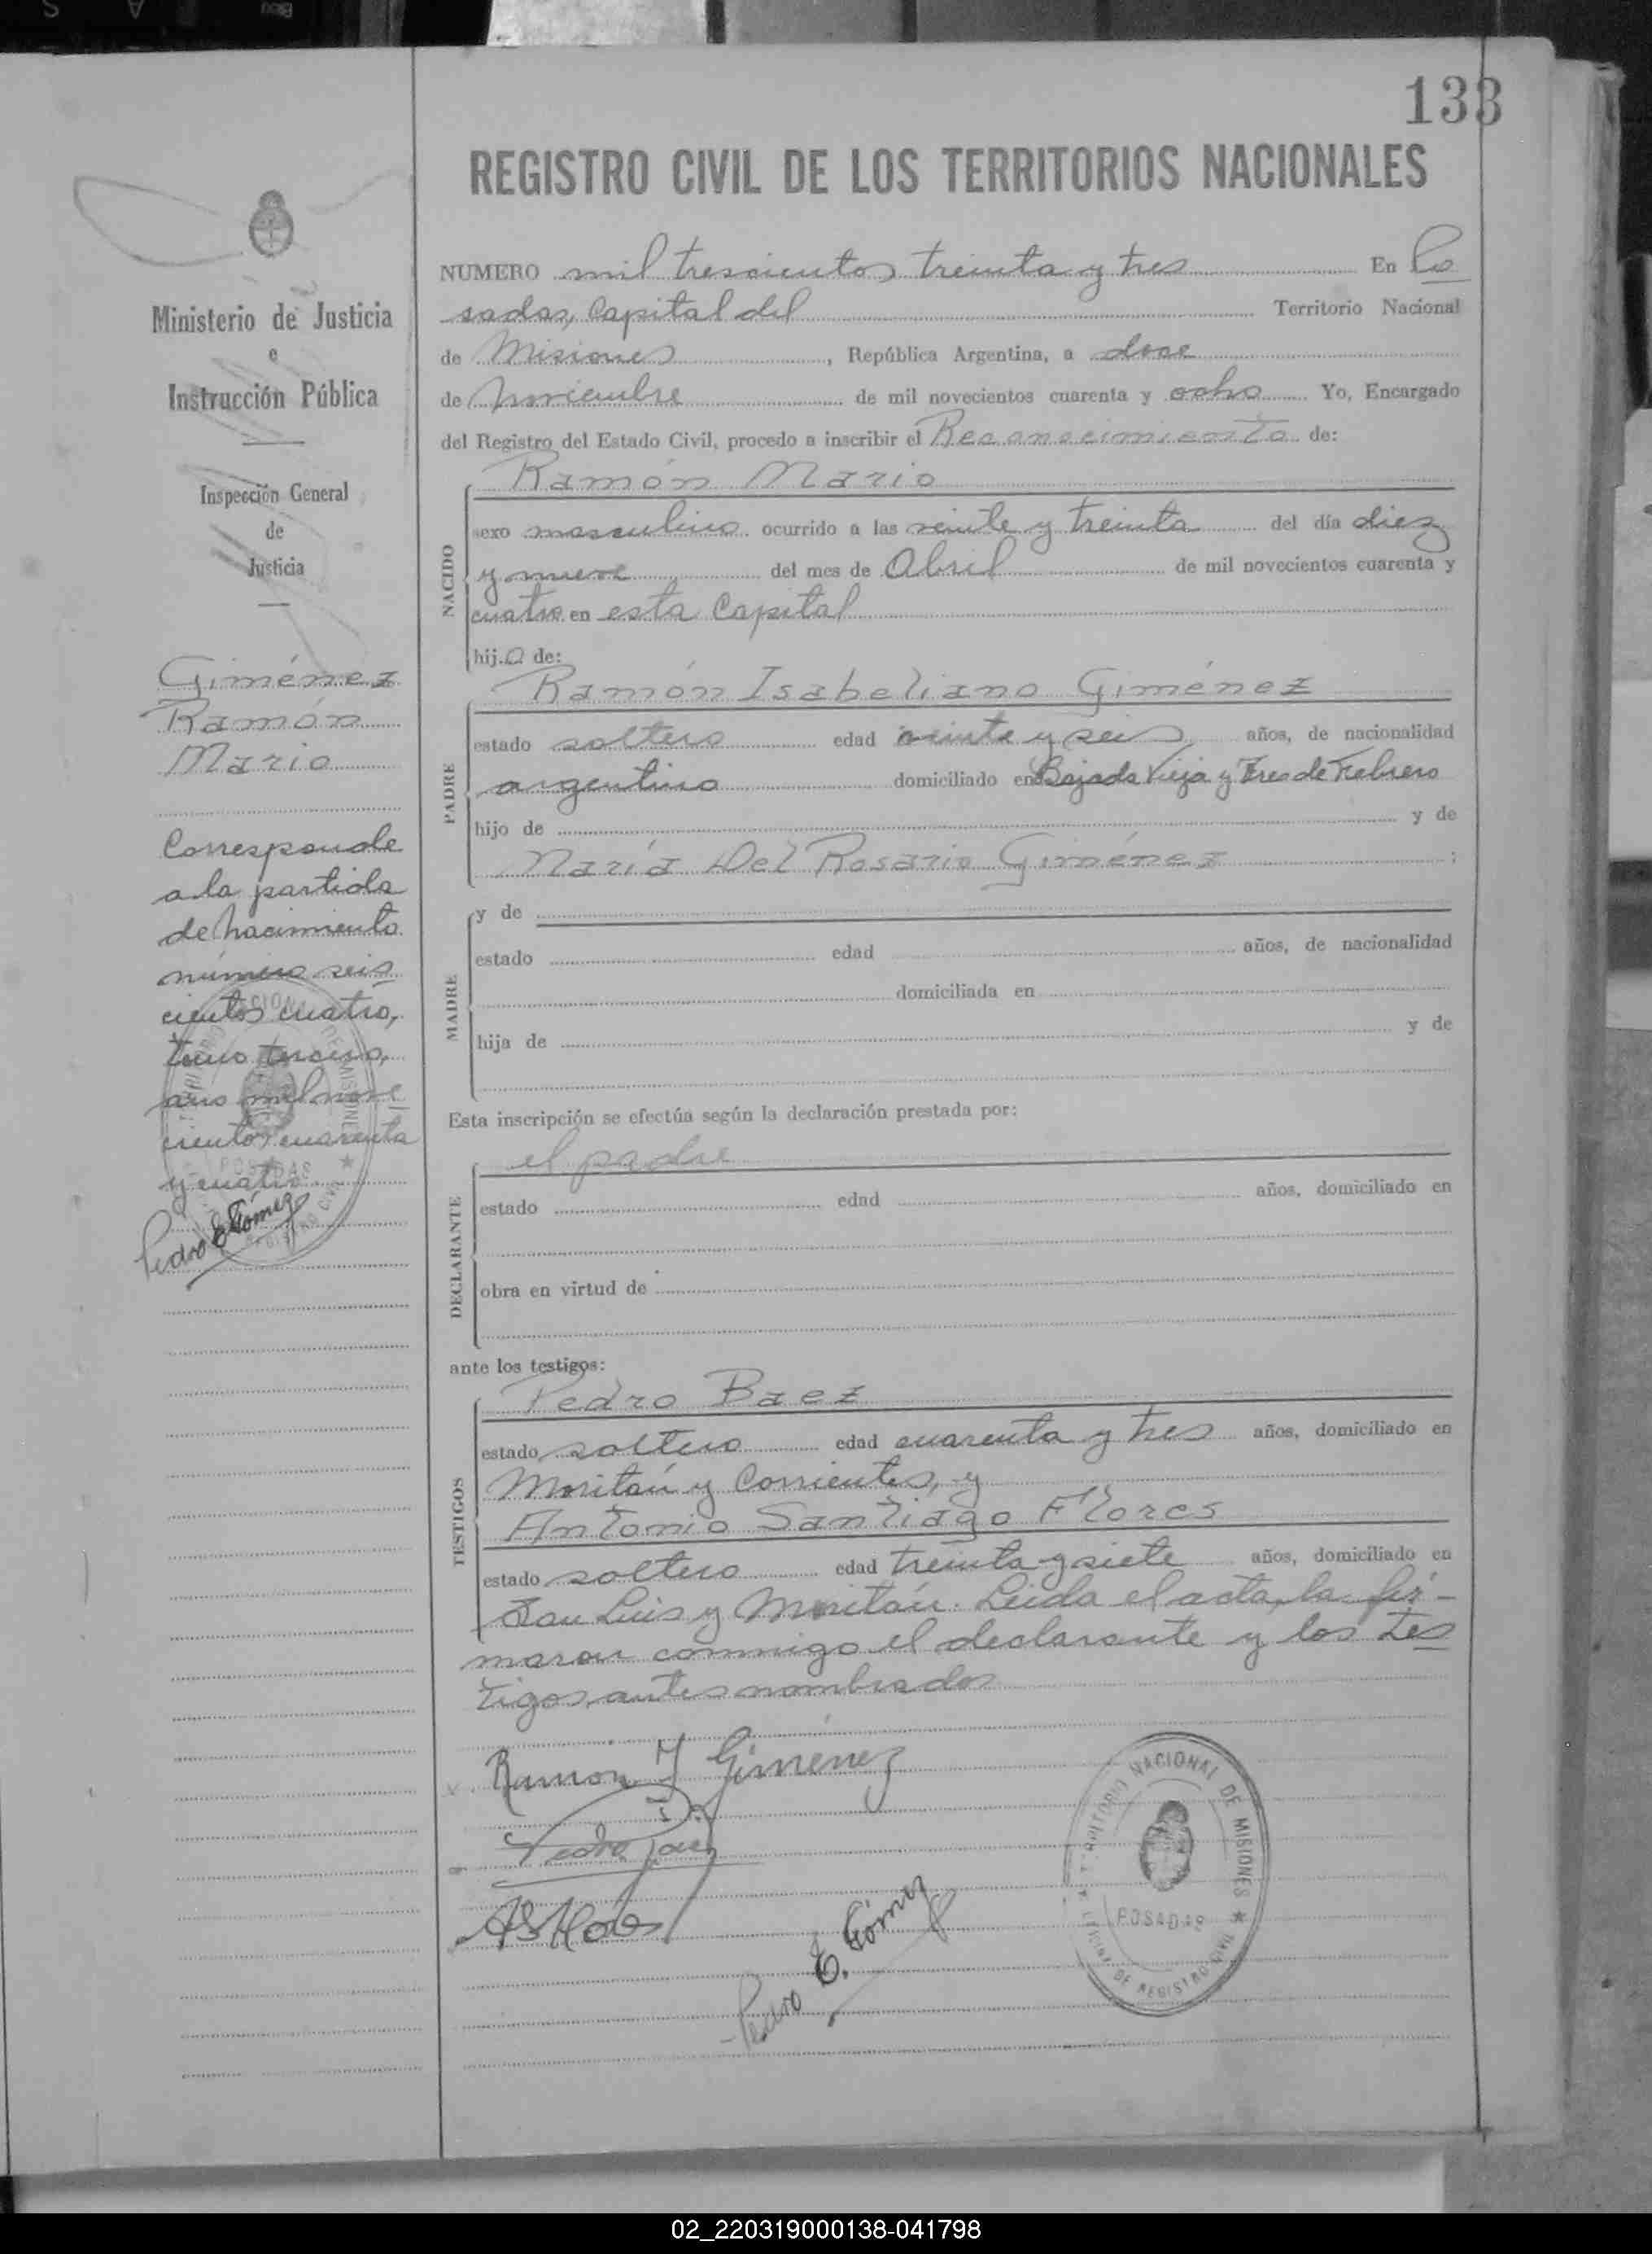 133
REGISTRO CIVIL DE LOS TERRITORIOS NACIONALES
Ministerio de Justicia
e
Instrucción Pública
Inspección General
de
Justicia
Giménez
Ramón
Mario
Corresponde
a la partida
de nacimiento
número seis
cientos cuatro,
tomo tercero,
año mil nove
cientos cuarenta
y cuatro.
Pedro E. Gómez
NUMERO mil trescientos treinta y tres En Po
sadas, Capital del Territorio Nacional
de Misiones, República Argentina, a doce
de Noviembre de mil novecientos cuarenta y ocho Yo, Encargado
del Registro del Estado Civil, procedo a inscribir el Reconocimiento de:
NACIDO
Ramón Mario
sexo masculino ocurrido a las veinte y treinta del día diez
y nueve del mes de Abril de mil novecientos cuarenta y
cuatro en esta Capital
hijo de:
PADRE
Ramón Isabeliano Giménez
estado soltero edad veinte y seis años, de nacionalidad
argentino domiciliado en Bajada Vieja y Tres de Febrero
hijo de y de
María Del Rosario Giménez ;
MADRE
y de
estado edad años, de nacionalidad
domiciliada en
hija de y de
Esta inscripción se efectúa según la declaración prestada por:
DECLARANTE
el padre
estado edad años, domiciliado en
obra en virtud de
ante los testigos:
TESTIGOS
Pedro Baez
estado soltero edad cuarenta y tres años, domiciliado en
Moritán y Corrientes, y
Antonio Santiago Flores
estado soltero edad treinta y siete años, domiciliado en
San Luis y Moritán. Leida el acta, la fir-
maron conmigo el declarante y los tes
tigos antes nombrados
Ramon Y Gimenez
Pedro Baez
Pedro E. Gómez
TERRITORIO NACIONAL DE MISIONES
POSADAS
OFICINA DE REGISTRO CIVIL
02_220319000138-041798